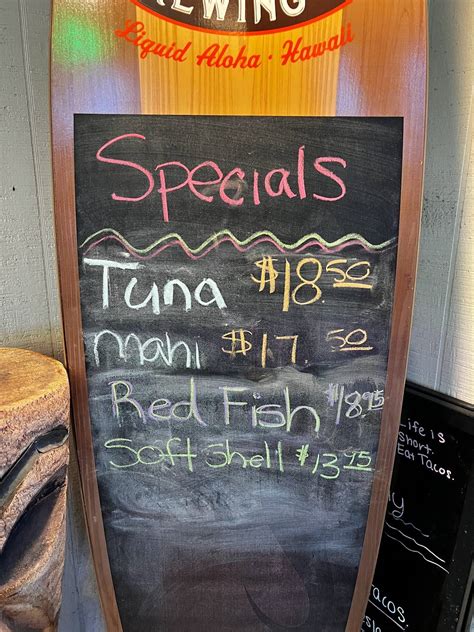 EWING
Liquid Aloha · Hawaii
Specials
Tuna $18.50
mahi $17.50
Red Fish $18.95
Soft Shell $13.95
Life is
short.
Eat Tacos.